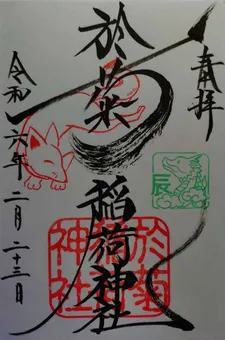 奉拝
於菊稲荷神社
令和六年二月二十三日
辰
於菊
神社